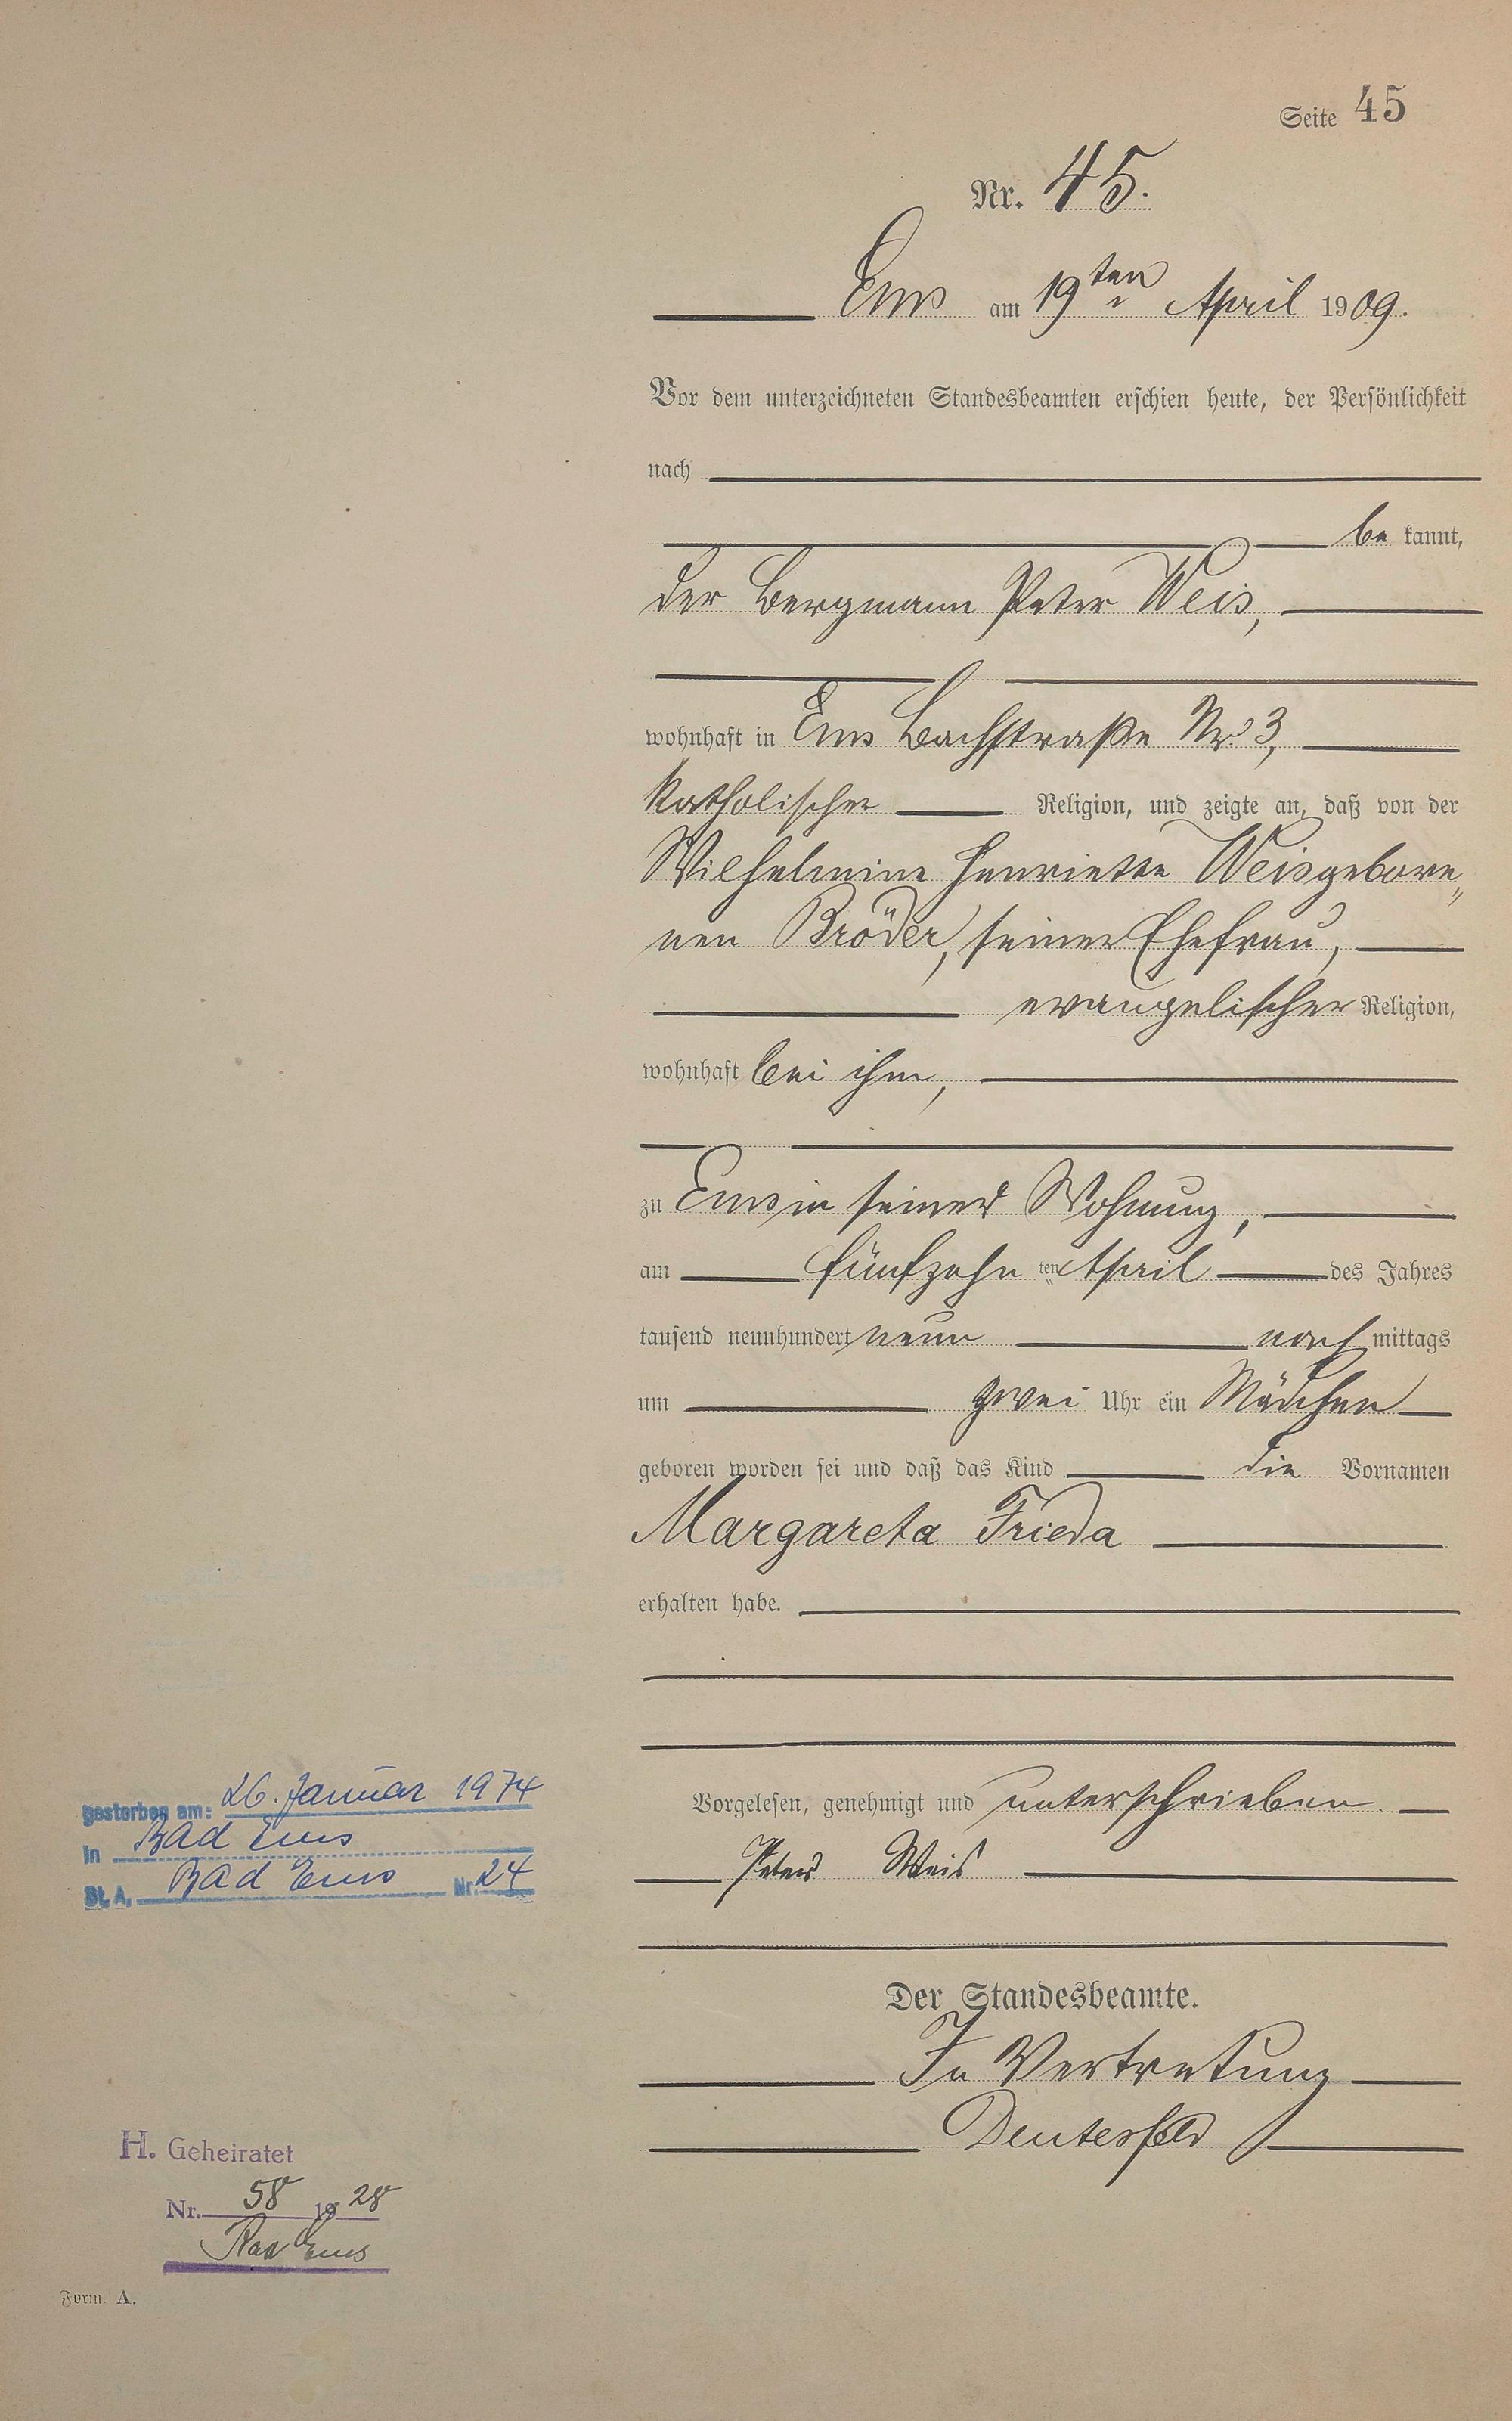 Seite 45
Nr. 45.
Ems am 19ten April 1909.
Vor dem unterzeichneten Standesbeamten erschien heute, der Persönlichkeit
nach
be kannt,
der Bergmann Peter Weis,
wohnhaft in Ems Bachstraße Nr. 3,
katholischer Religion, und zeigte an, daß von der
Wilhelmine Henriette Weis gebore„
nen Bröder, seiner Ehefrau,
evangelischer Religion,
wohnhaft bei ihm,
zu Ems in seiner Wohnung,
am fünfzehn ten April des Jahres
tausend neunhundert neun nach mittags
um zwei Uhr ein Mädchen
geboren worden sei und daß das Kind die Vornamen
Margareta Frieda
erhalten habe.
Vorgelesen, genehmigt und unterschrieben.
Peter Weis
Der Standesbeamte.
In Vertretung
gestorben am: 26. Januar 1974
in Bad Ems
St. A. Bad Ems Nr. 24
H. Geheiratet
Nr. 58 1928
Bad Ems
Form. A.